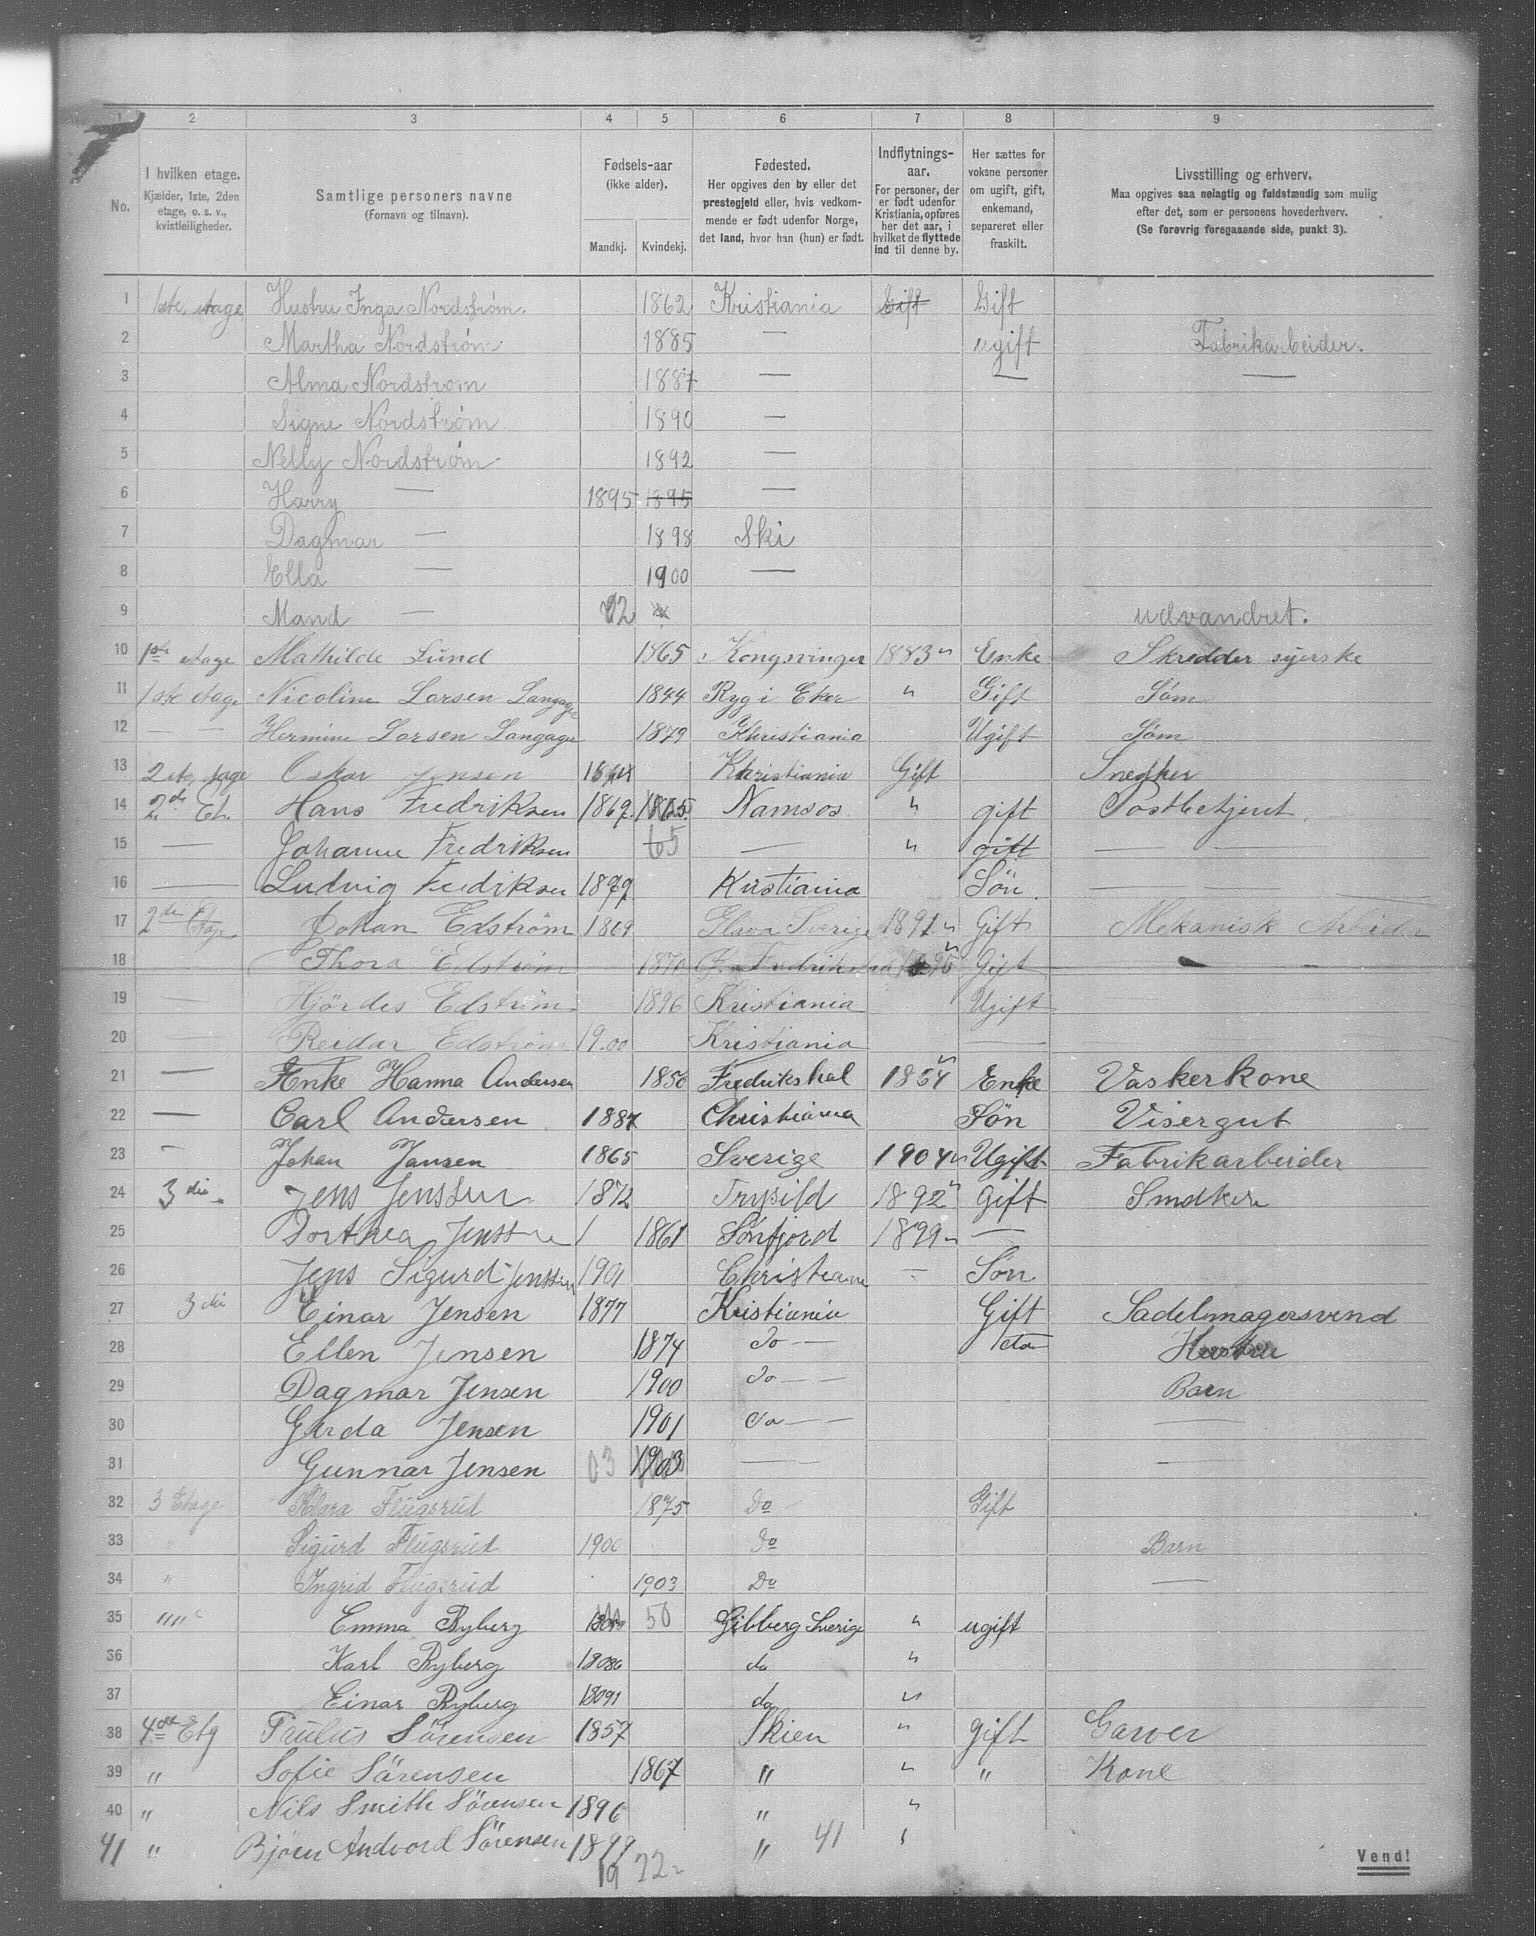 1 2 3 4 5 6 7 8 9
No.
I hvilken etage.
Kjælder, 1ste, 2den
etage, o. s. v.,
kvistleiligheder.
Samtlige personers navne
(Fornavn og tilnavn).
Fødsels-aar
(ikke alder).
Mandkj. Kvindekj.
Fødested.
Her opgives den by eller det
prestegjeld eller, hvis vedkom-
mende er født udenfor Norge,
det land, hvor han (hun) er født.
Indflytnings-
aar.
For personer, der
er født udenfor
Kristiania, opføres
her det aar, i
hvilket de flyttede
ind til denne by.
Her sættes for
voksne personer
om ugift, gift,
enkemand,
separeret eller
fraskilt.
Livsstilling og erhverv.
Maa opgives saa nøiagtig og fuldstændig som mulig
efter det, som er personens hovederhverv.
(Se forøvrig foregaaende side, punkt 3).
1 1ste etage Hustru Inga Nordstrøm. 1862 Kristiania Gift Gift
2 Martha Nordstrøm 1885 — ugift Fabrikarbeider.
3 Alma Nordstrøm 1887 — — —
4 Signe Nordstrøm 1890 —
5 Nelly Nordstrøm 1892 —
6 Harry — 1895 1895 —
7 Dagmar — 1898 Ski
8 Ella — 1900 —
9 Mand — udvandret.
10 1ste etage Mathilde Lund 1865 Kongsvinger 1883 " Enke Skredder syerske
11 1ste etage Nicoline Larsen Langager 1844 Ryg i Eker " Gift Søm
12 — — Hermine Larsen Langager 1879 Khristiania Ugift Søm
13 2 etage Oskar Jensen Khristiania Gift Snedker
14 2den Et. Hans Fredriksen 1869. 1865. Namsos " gift Postbetjent
15 — Johanne Fredriksen 65 — " gift — —
16 — Ludvig Fredriksen Kristiania Søn — —
17 2den Etage Johan Edstrøm 1869 Glava Sverige 1891 " Gift Mekanisk Arbeider
18 — Thora Edstrøm 1870 Fredrikstad " Gift
19 — Hjørdes Edstrøm 1896 Kristiania Ugift
20 — Reidar Edstrøm 1900 Kristiania —
21 — Enke Hanna Andersen 1850 Fredrikshal 1864 " Enke Vaskerkone
22 — Carl Andersen 1887 Christiania Søn Visergut
23 - Johan Jansen 1865 Sverige 1904 " Ugift Fabrikarbeider
24 3die Jens Jenssen 1872 Trysild 1892 " Gift
25 Dorthea Jenssen 1861 Sønfjord 1899 " —
26 Jens Sigurd Jenssen 1901 Christiania - Søn
27 3die Einar Jensen 1877 Kristiania Gift Sadelmagersvend
28 Ellen Jensen 1874 Do — do Hustru
29 Dagmar Jensen 1900 Do — — Barn
30 Gerda Jensen 1901 Do — — —
31 Gunnar Jensen 03 1903 — — —
32 3 Etage Klara Flugsrud 1875 Do - Gift
33 " Sigurd Flugsrud 1900 Do Barn
34 " Ingrid Flugsrud 1903 Do —
35 """ Emma Ryberg 50 Gibberg Sverige " ugift
36 Karl Ryberg 18086 do "
37 Einar Ryberg 18091 do "
38 4de Etg Sørensen 1857 Skien " gift Garver
39 " Sofie Sørensen 1867 " " " Kone
40 " Nils Smith Sørensen 1896 " "
41 " Bjørn Andvord Sørensen 1899 " 41
19 22
Vend!